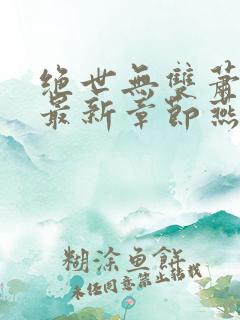 絕世無雙蕭
最新章節燕
糊涂鱼餅
未经同意禁止转载